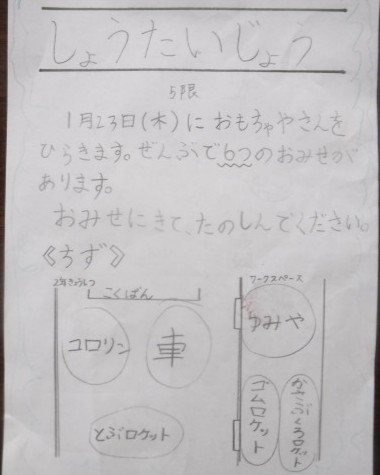 しょうたいじょう
5限
1月23日(木)に おもちゃやさんを
ひらきます。ぜんぶで6つのおみせが
あります。
おみせにきて、たのしんでください。
《ちず》
2年きょうしつ
こくばん
コロリン
車
とぶロケット
ワークスペース
ゆみや
ゴムロケット
かさぶくろロケット